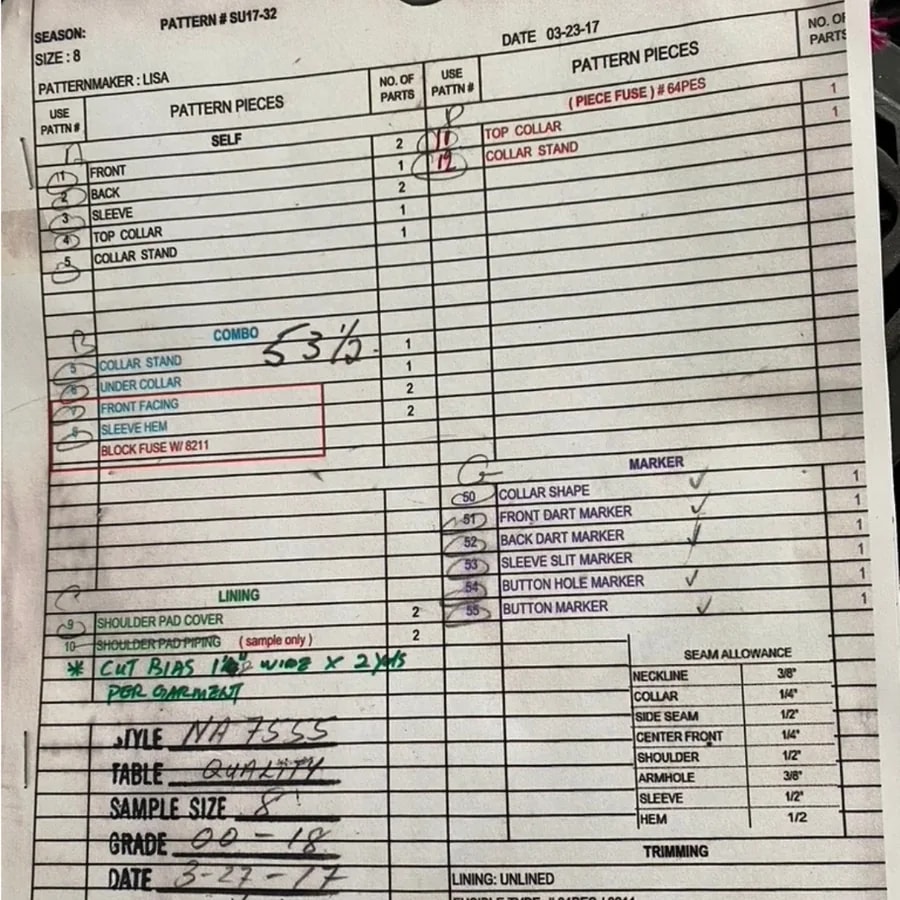 SEASON:
PATTERN # SU17-32
SIZE : 8
DATE 03-23-17
PATTERNMAKER : LISA
USE PATTN #
PATTERN PIECES
NO. OF PARTS
SELF
A
11 FRONT 2
2 BACK 1
3 SLEEVE 2
4 TOP COLLAR 1
5 COLLAR STAND 1
B
COMBO
53 1/2
5 COLLAR STAND 1
6 UNDER COLLAR 1
7 FRONT FACING 2
8 SLEEVE HEM 2
BLOCK FUSE W/ 8211
C
LINING
9 SHOULDER PAD COVER 2
10 SHOULDER PAD PIPING ( sample only ) 2
* CUT BIAS WIDE X 2 yds
PER GARMENT
STYLE NA 7555
TABLE QUALITY
SAMPLE SIZE 8
GRADE 00 - 18
DATE 3-27-17
USE PATTN #
PATTERN PIECES
NO. OF PARTS
( PIECE FUSE ) # 64PES
11 TOP COLLAR 1
12 COLLAR STAND 1
G
MARKER
50 COLLAR SHAPE 1
51 FRONT DART MARKER 1
52 BACK DART MARKER 1
53 SLEEVE SLIT MARKER 1
54 BUTTON HOLE MARKER 1
55 BUTTON MARKER 1
SEAM ALLOWANCE
NECKLINE 3/8"
COLLAR 1/4"
SIDE SEAM 1/2"
CENTER FRONT 1/4"
SHOULDER 1/2"
ARMHOLE 3/8"
SLEEVE 1/2"
HEM 1/2
TRIMMING
LINING: UNLINED